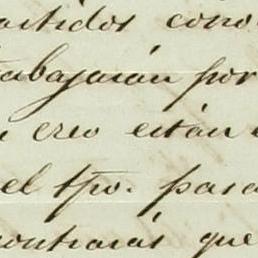 partidos cono
trabajarán por
creo están
el tpo. pasa
contrarás que